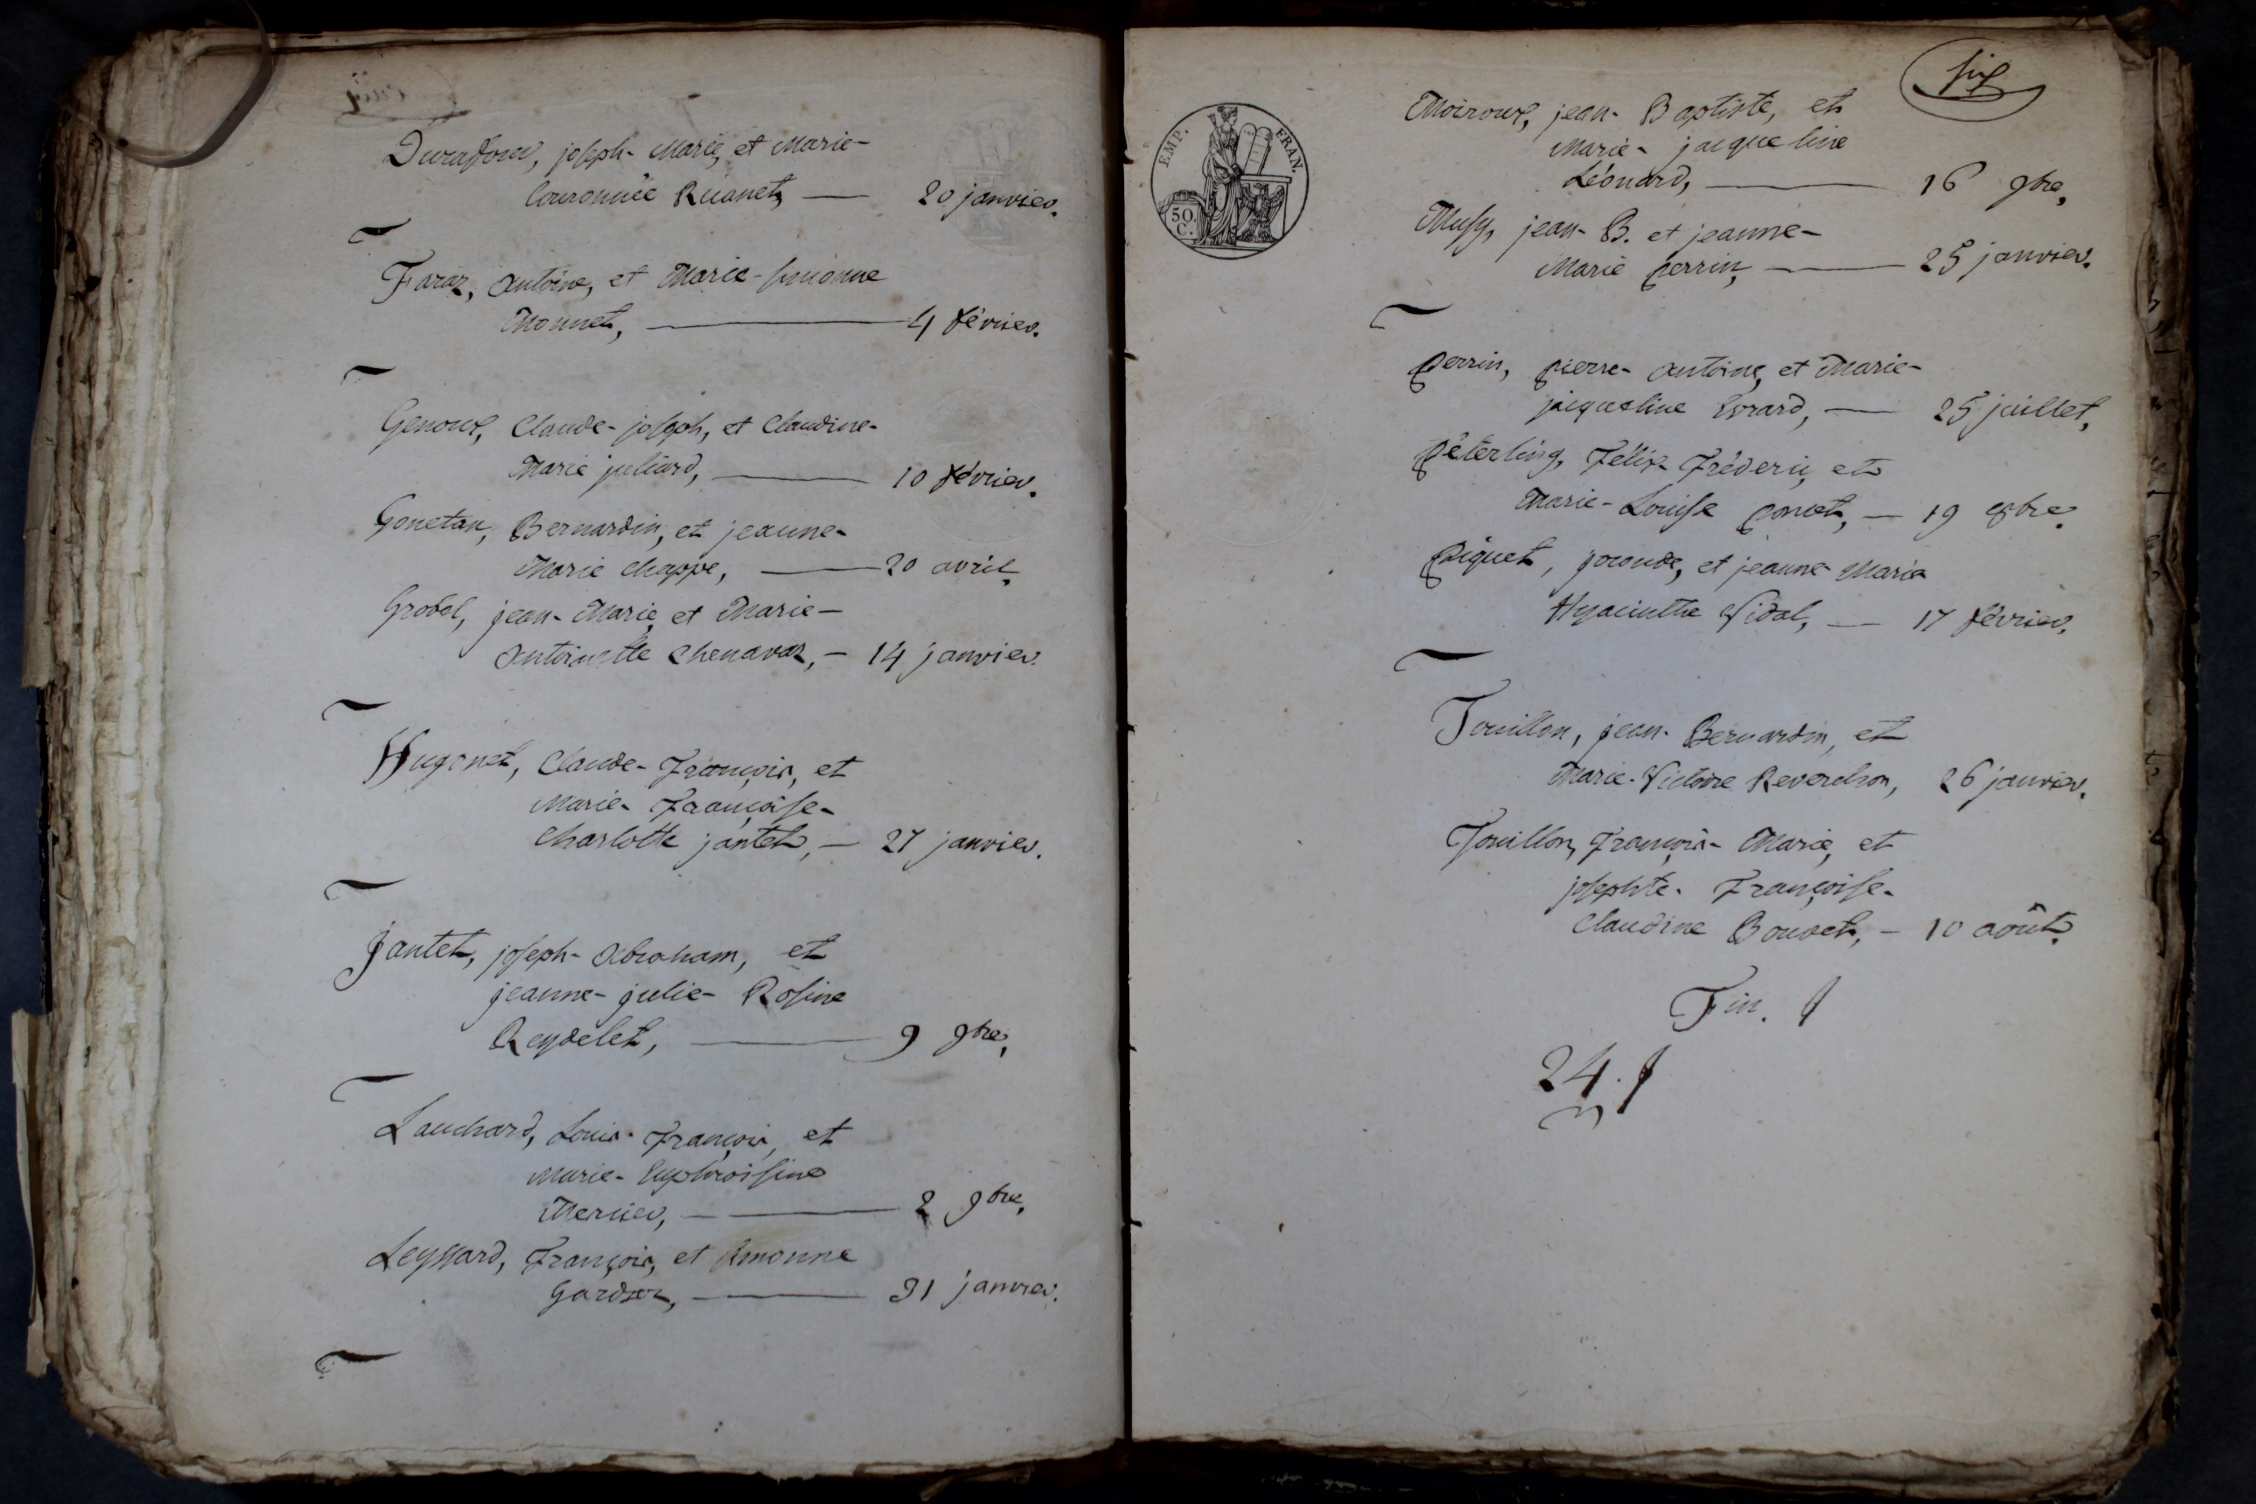 Duraffour, joseph-Marie, et Marie-
Couronnée Ruanet, — 20 janvier.
Faraz, Antoine, et Marie-simonne
Monnet, — 4 février.
Genoux, Claude-joseph, et Claudine-
Marie juliard, — 10 février.
Gonetan, Bernardin, et jeanne-
Marie Chappe, — 20 avril,
Grobel, jean-Marie, et Marie-
Antoinette Chenavaz, — 14 janvier.
Hugonet, Claude-François, et
Marie-Françoise-
Charlotte jantet, — 27 janvier.
Jantet, joseph-Abraham, et
jeanne-julie-Rosine
Reydelet, — 9 9bre,
Lauchard, Louis-François, et
Marie-Euphroisine
Mercier, — 2 9bre,
Leyssard, François, et simonne
— 31 janvier.
six
EMP. FRAN.
50.
C.
Moiroux, jean-Baptiste, et
Marie-jacqueline
Léonard, — 16 9bre,
Musy, jean-B. et jeanne-
Marie Perrin, — 25 janvier.
Perrin, Pierre-Antoine, et Marie-
jacqueline Evrard, — 25 juillet,
Péterling, Félix Fréderic, et
Marie-Louise Poncet, — 19 8bre.
Piquet, joconde, et jeanne Marie
Hyacinthe Vidal, — 17 février.
Touillon, jean-Bernardin, et
Marie-Victoire Reverchon, 26 janvier.
Touillon, François-Marie, et
josephte-Françoise-
Claudine Bouvet, — 10 août.
Fin.
24.